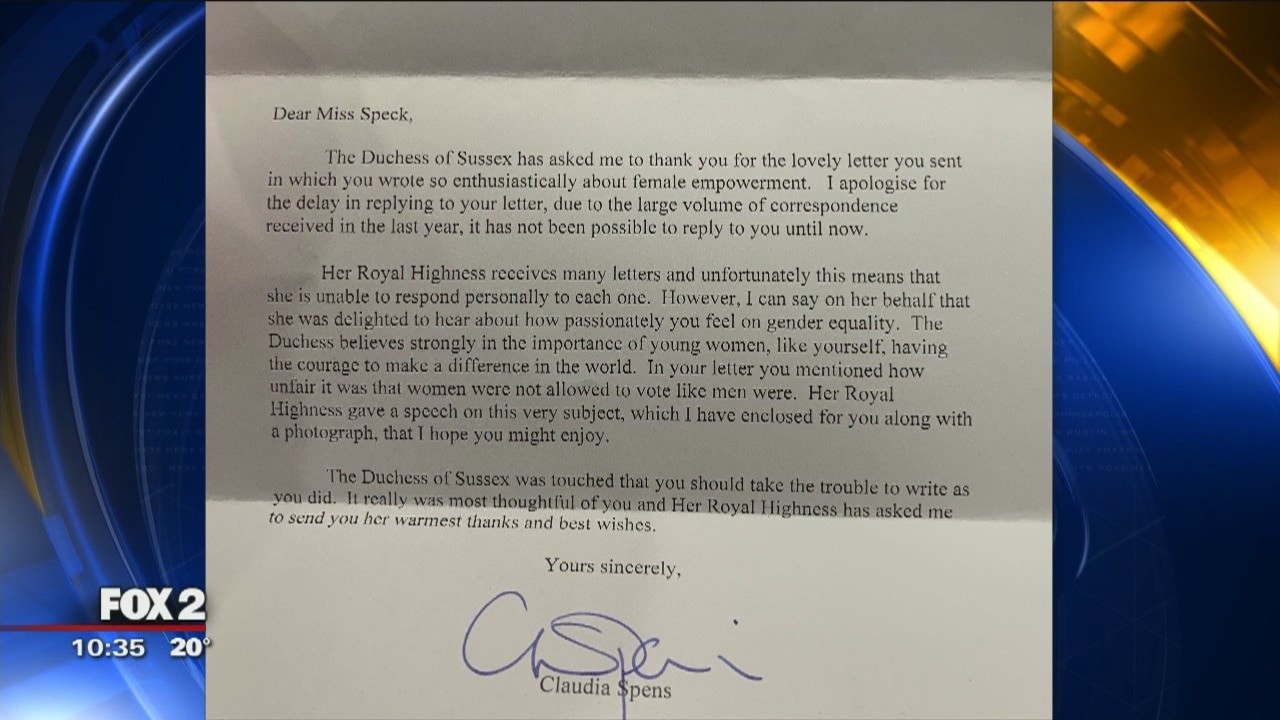 Dear Miss Speck,
The Duchess of Sussex has asked me to thank you for the lovely letter you sent
in which you wrote so enthusiastically about female empowerment. I apologise for
the delay in replying to your letter, due to the large volume of correspondence
received in the last year, it has not been possible to reply to you until now.
Her Royal Highness receives many letters and unfortunately this means that
she is unable to respond personally to each one. However, I can say on her behalf that
she was delighted to hear about how passionately you feel on gender equality. The
Duchess believes strongly in the importance of young women, like yourself, having
the courage to make a difference in the world. In your letter you mentioned how
unfair it was that women were not allowed to vote like men were. Her Royal
Highness gave a speech on this very subject, which I have enclosed for you along with
a photograph, that I hope you might enjoy.
The Duchess of Sussex was touched that you should take the trouble to write as
you did. It really was most thoughtful of you and Her Royal Highness has asked me
to send you her warmest thanks and best wishes.
Yours sincerely,
Claudia Spens
FOX 2
10:35 20°